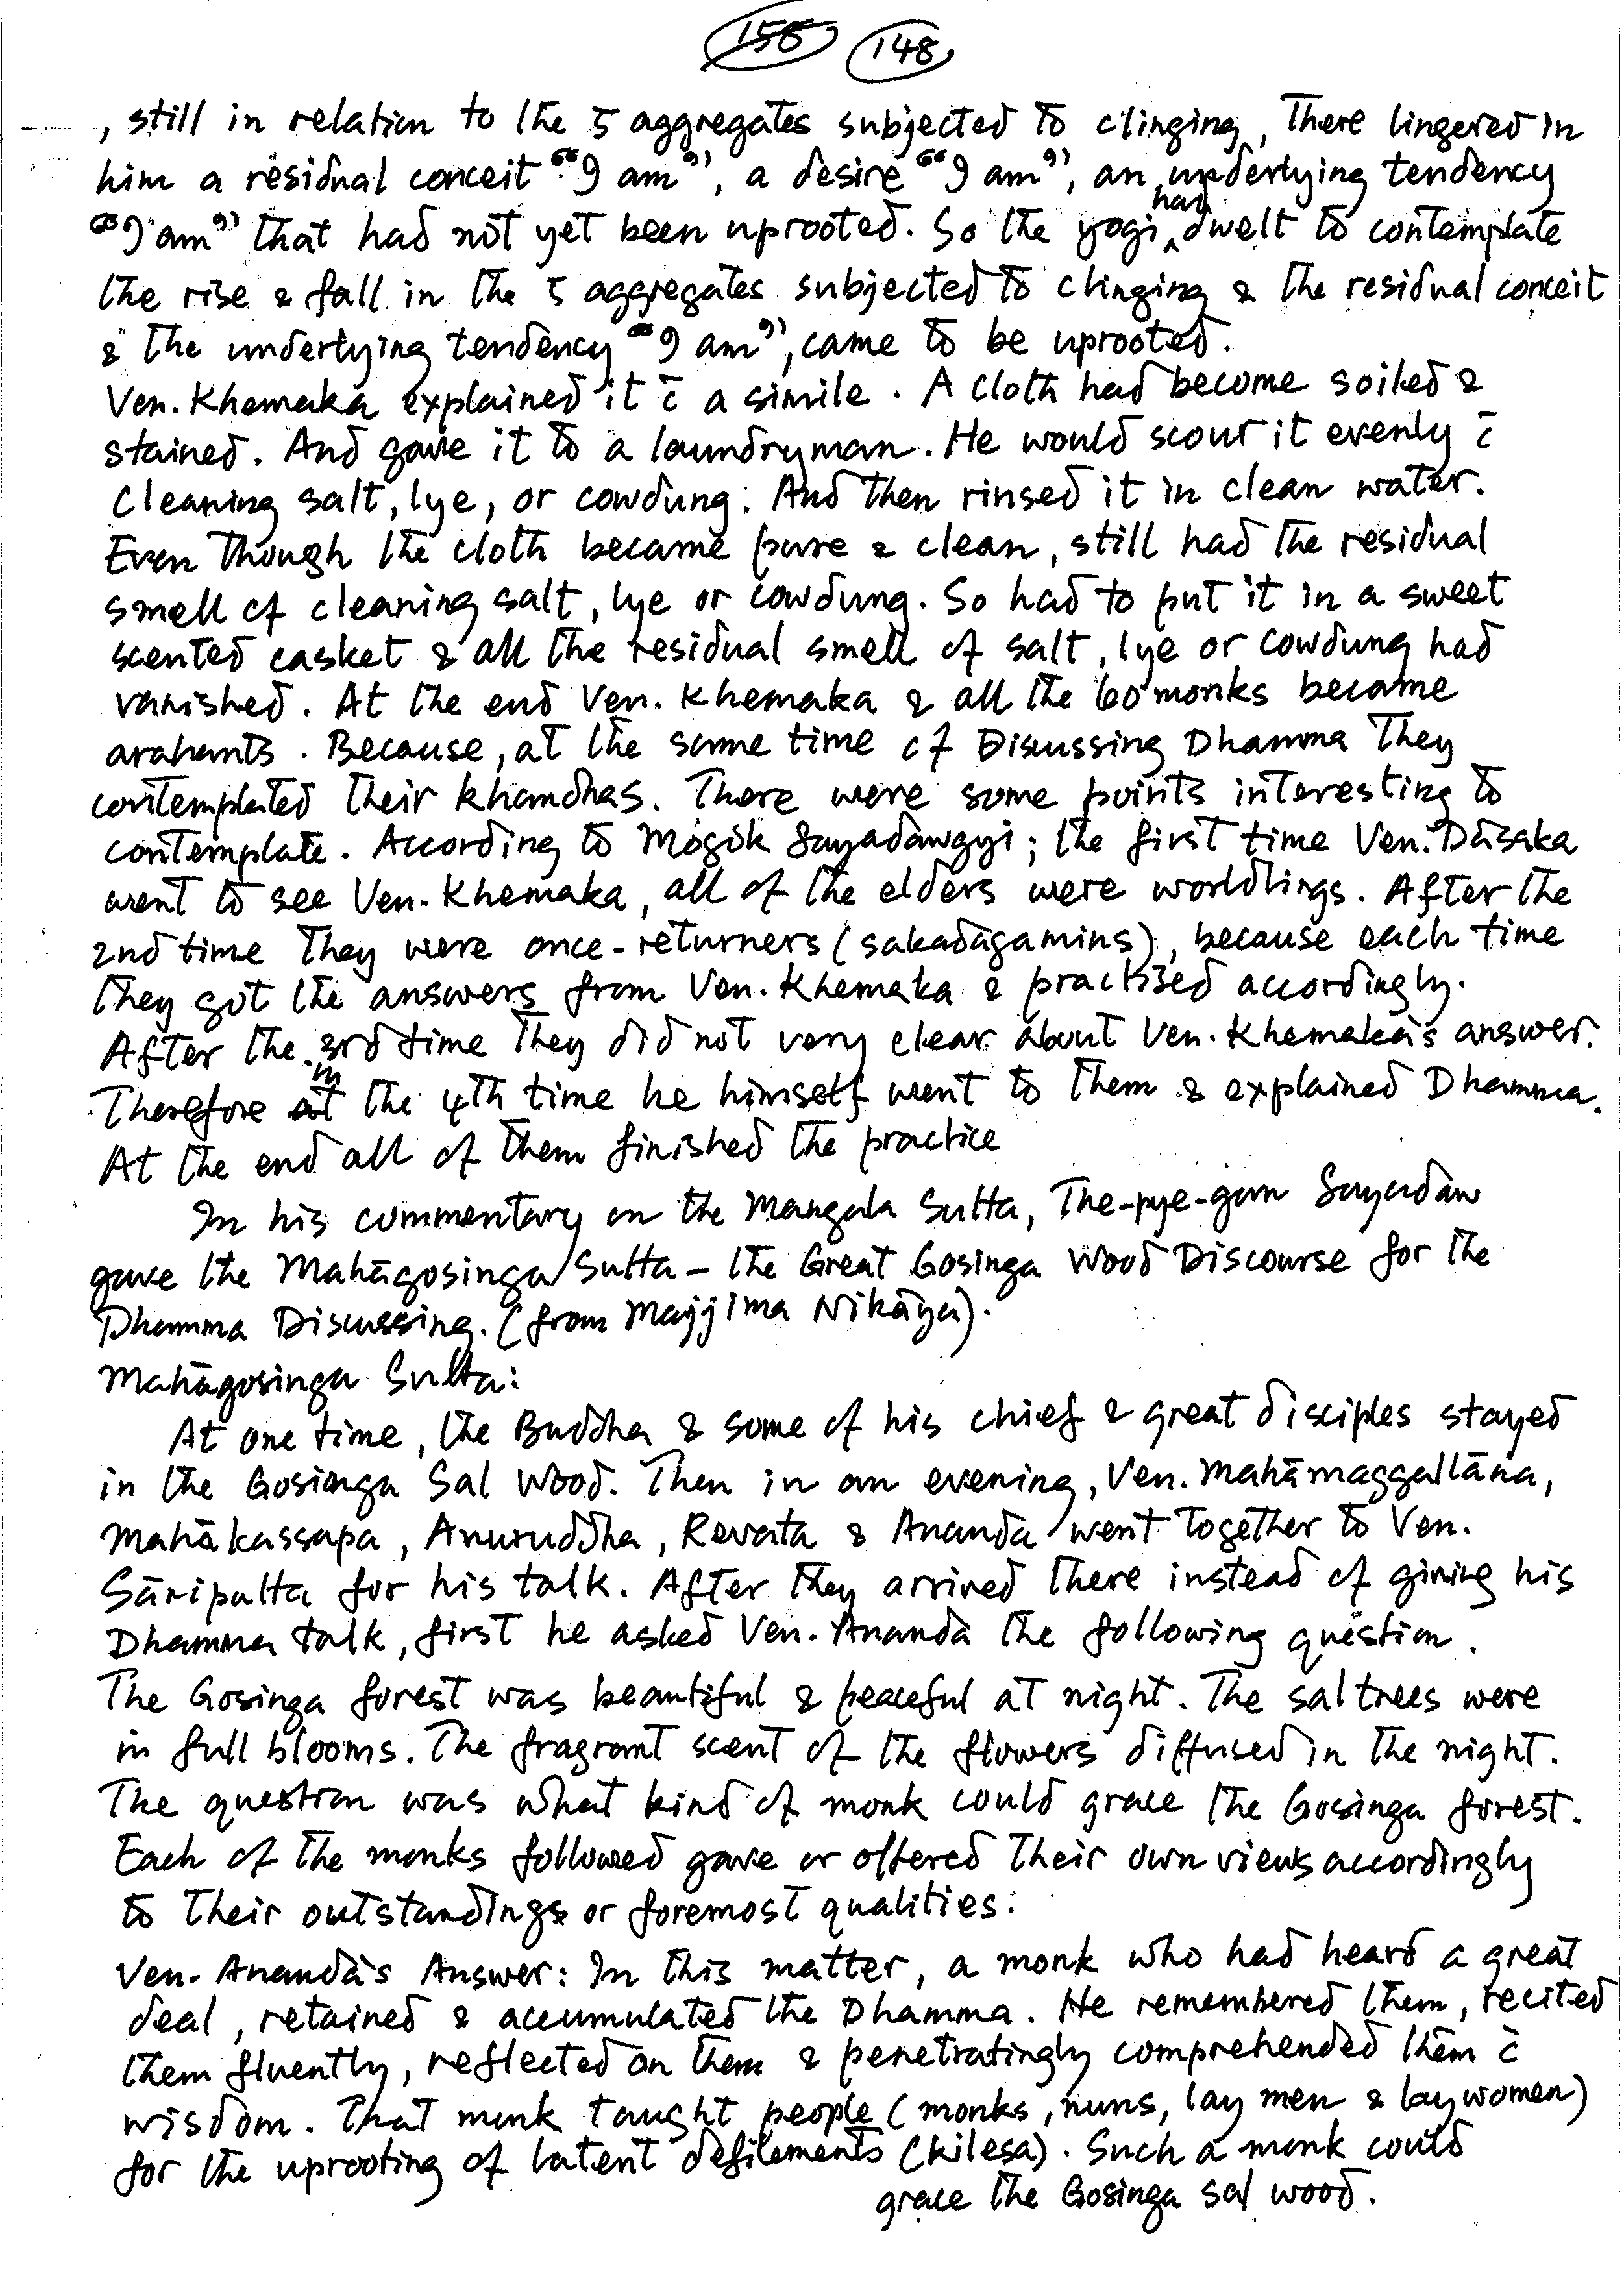 156 148
, still in relation to the 5 aggregates subjected to clinging, There lingered in
him a residual conceit “I am”, a desire “I am”, an underlying tendency
“I am” that had not yet been uprooted. So the yogi had dwelt to contemplate
the rise & fall in the 5 aggregates subjected to clinging & the residual conceit
& the underlying tendency “I am”, came to be uprooted.
Ven. Khemaka explained it c̄ a simile. A cloth had become soiled &
stained. And gave it to a laundryman. He would scour it evenly c̄
cleaning salt, lye, or cowdung. And then rinsed it in clean water.
Even though the cloth became pure & clean, still had the residual
smell of cleaning salt, lye or cowdung. So had to put it in a sweet
scented casket & all the residual smell of salt, lye or cowdung had
vanished. At the end Ven. Khemaka & all the 60 monks became
arahants. Because, at the same time of Discussing Dhamma They
contemplated their khandhas. There were some points interesting to
contemplate. According to Mogok Sayadawgyi; the first time Ven. Dāsaka
went to see Ven. Khemaka, all of the elders were worldlings. After the
2nd time They were once-returners (sakadāgamins), because each time
they got the answers from Ven. Khemaka & practised accordingly.
After the 3rd time They did not very clear about Ven. Khemaka's answer.
Therefore in the 4th time he himself went to them & explained Dhamma.
At the end all of them finished the practice
In his commentary on the Mangala Sutta, The-pye-gan Sayadaw
gave the Mahāgosinga Sutta – the Great Gosinga Wood Discourse for the
Dhamma Discussing. (from Majjima Nikāya).
Mahāgosinga Sutta:
At one time, the Buddha & some of his chief & great disciples stayed
in the Gosianga Sal Wood. Then in an evening, Ven. Mahāmaggallāna,
Mahākassapa, Anuruddha, Revata & Ananda went together to Ven.
Sāriputta for his talk. After they arrived there instead of giving his
Dhamma talk, first he asked Ven. Ananda the following question.
The Gosinga forest was beautiful & peaceful at night. The sal trees were
in full blooms. The fragrant scent of the flowers diffused in the night.
The question was what kind of monk could grace the Gosinga forest.
Each of the monks followed gave or offered their own views accordingly
to their outstandings or foremost qualities:
Ven. Ananda's Answer: In this matter, a monk who had heard a great
deal, retained & accumulated the Dhamma. He remembered them, recited
them fluently, reflected on them & penetratingly comprehended them c̄
wisdom. That monk taught people (monks, nuns, lay men & laywomen)
for the uprooting of latent defilements (kilesa). Such a monk could
grace the Gosinga sal wood.